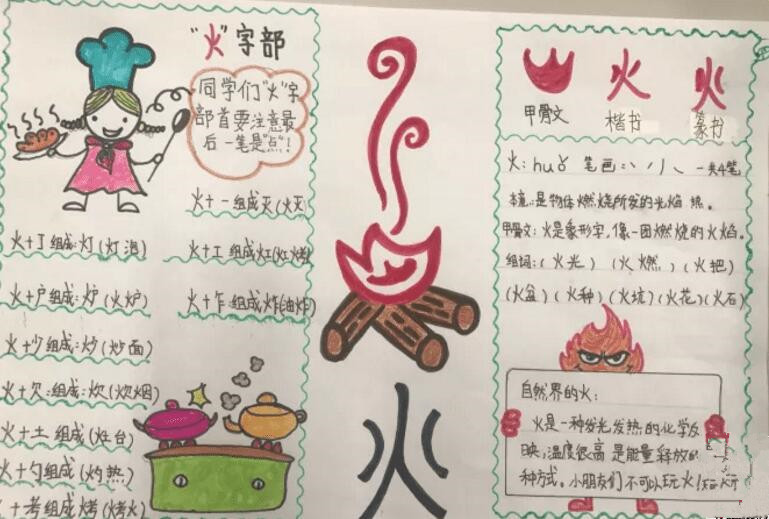 “火”字部
同学们“火”字
部首要注意最
后一笔是“点”!
火+一组成灭(火灭)
火+丁组成:灯(灯泡)
火+工组成灯(灶烤)
火+户组成:炉(火炉)
火+乍:组成炸(油炸)
火+少组成:炒(炒面)
火+欠:组成:炊(炊烟)
火+土组成(灶台)
火+勺组成(灼热)
火+考组成烤(烤火)
火
甲骨文
火
楷书
火
篆书
火:huǒ 笔画:丶丿丿㇏一共4笔
本意:是物体燃烧所发的光焰 热。
甲骨文:火是象形字,像一团燃烧的火焰。
组词:(火光)(火燃)(火把)
(火盆)(火种)(火坑)(火花)(火石)
自然界的火:
火是一种发光发热的化学反
映,温度很高是能量释放的一
种方式。小朋友们不可以玩火!